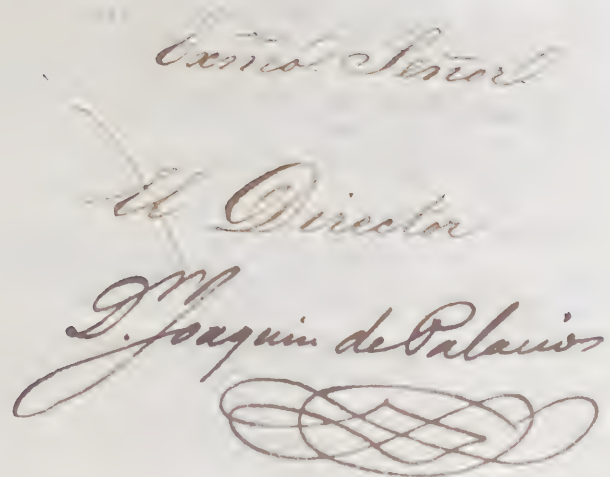 Exmo Señor
El Director
D.n Joaquin de Palacios